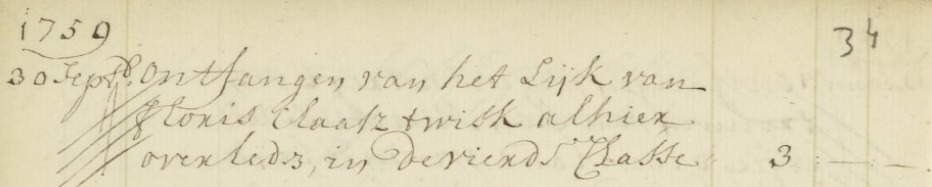 1759
34
30 Septb. ontfangen van het Lijk van
floris Claasz twisk alhier
overleds, in de vierds Classe 3 : — : —